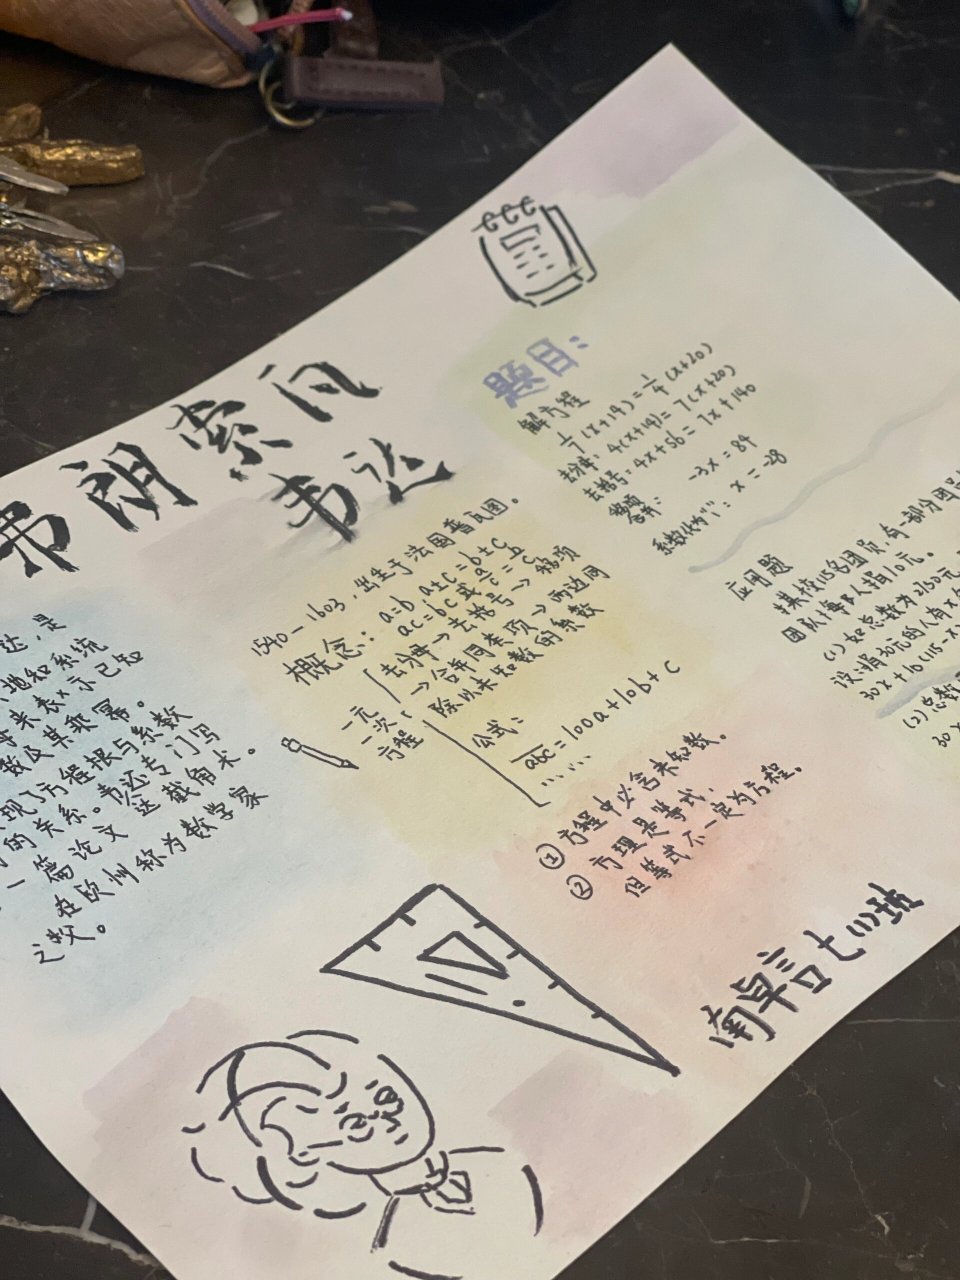 弗朗索瓦
韦达
达,是
地知系统
来表示已知
数及其乘幂。
现了方程根与系数
的关系。韦达专门写
一篇论文"截角术"。
他在欧洲称为数学家
之父。
1540—1603,出生于法国普瓦图。
概念: a=b, a±c=b±c
ac=bc 或 a/c = b/c
一元
一次
方程
去分母→去括号→移项
→合并同类项→两边同
除以未知数的系数
公式:
abc = 100a+10b+c
……
① 方程中必含未知数。
② 方程是等式,
但等式不一定为方程。
题目:
解方程
1/7(x+14)=1/4(x+20)
去分母: 4(x+14)=7(x+20)
去括号: 4x+56=7x+140
移项
合并: -3x=84
系数化为"1": x=-28
应用题
某校115名团员,有一部分团员
团队每多人捐10元。
(1) 如总数为2150元
设:捐30元的人有x名
30x+10(115-x
(2) 总数
30x
南卓言 七(1)班